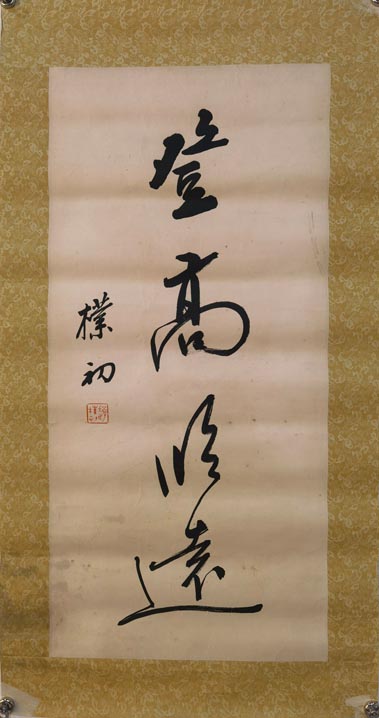 登高遠
樸初